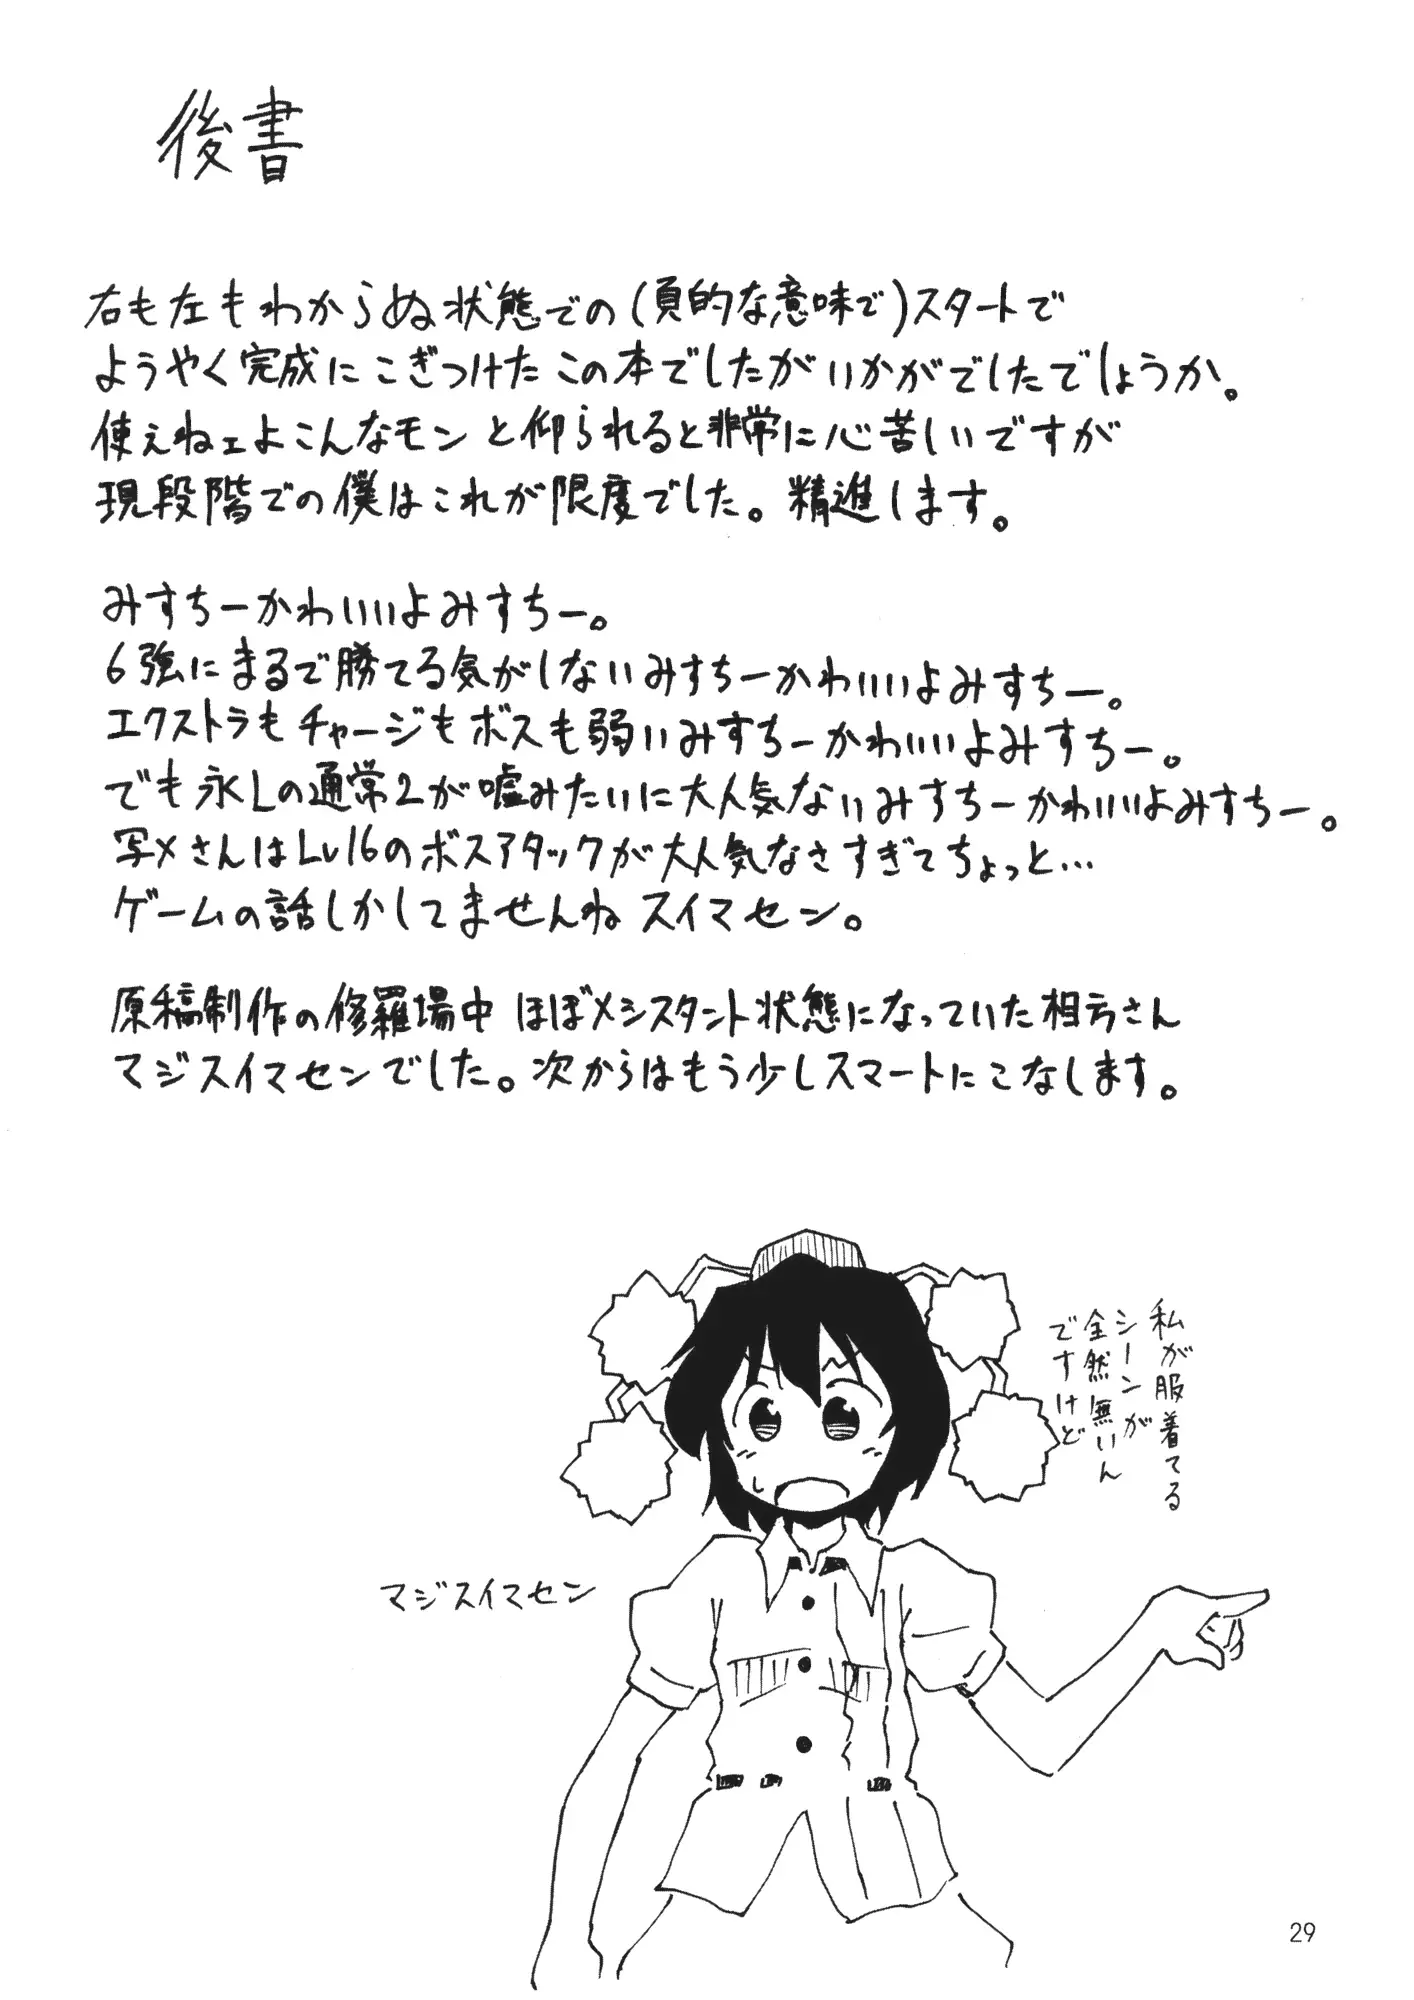 後書
右も左もわからぬ状態での(頁的な意味で)スタートで
ようやく完成にこぎつけたこの本でしたがいかがでしたでしょうか。
使えねェよこんなモンと仰られると非常に心苦しいですが
現段階での僕はこれが限度でした。精進します。
みすちーかわいいよみすちー。
6強にまるで勝てる気がしないみすちーかわいいよみすちー。
エクストラもチャージもボスも弱いみすちーかわいいよみすちー。
でも永Lの通常2が嘘みたいに大人気ないみすちーかわいいよみすちー。
写メさんはLv16のボスアタックが大人気なさすぎてちょっと…
ゲームの話しかしてませんねスイマセン。
原稿制作の修羅場中 ほぼメシスタント状態になっていた相方さん
マジスイマセンでした。次からはもう少しスマートにこなします。
私が服着てる
シーンが
全然無いん
ですけど
マジスイマセン
29